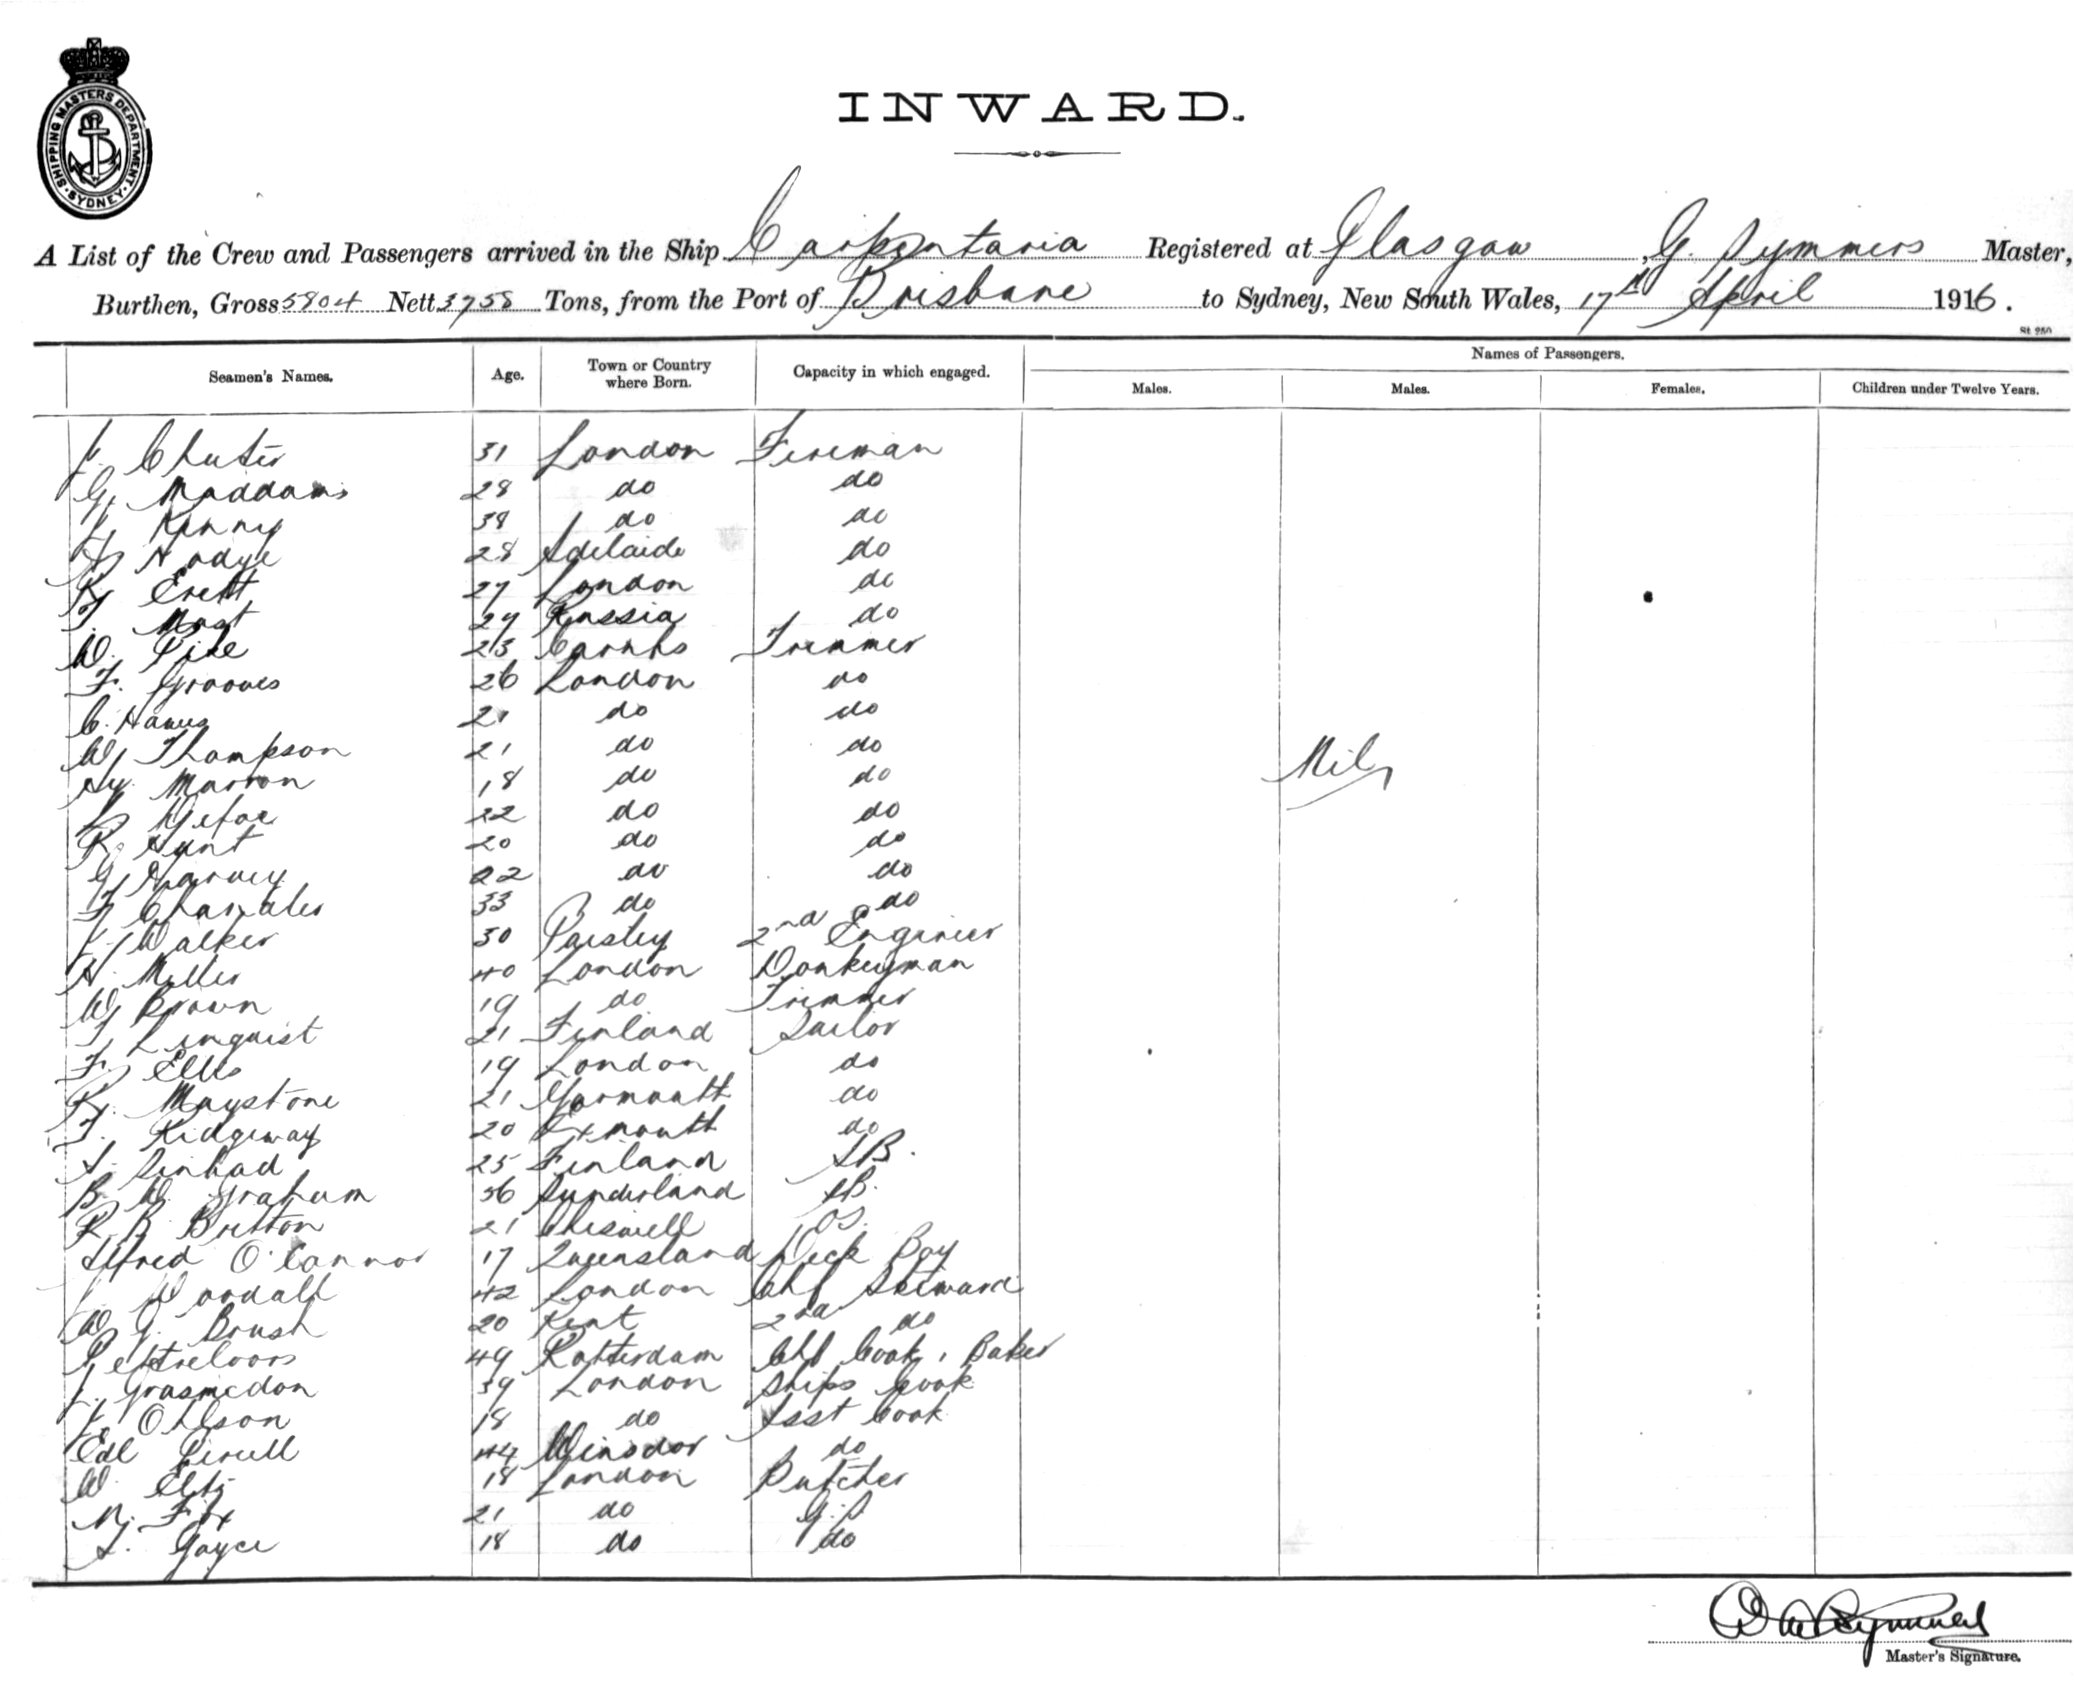 SHIPPING MASTERS DEPARTMENT · SYDNEY ·
INWARD.
A List of the Crew and Passengers arrived in the Ship Carpentaria Registered at Glasgow, G. Symmers Master,
Burthen, Gross 5804 Nett 3758 Tons, from the Port of Brisbane to Sydney, New South Wales, 17th April 1916.
St 250
Seamen's Names. Age. Town or Country where Born. Capacity in which engaged. Names of Passengers.
Males. Males. Females. Children under Twelve Years.
Chuter 31 London Fireman
G. Maddams 28 do do
Kenny 38 do do
28 Adelaide do
27 London do
29 Russia do
W. Pike 23 Trimmer
F. Grooves 26 London do
C. 21 do do
W. Thompson 21 do do
Hy. Marron 18 do do
22 do do
R. Hunt 20 do do
G. Harvey 22 do do
33 do do
J. Walker 30 Paisley 2nd Engineer
H. Miller 40 London Donkeyman
W. Brown 19 do Trimmer
Linquist 21 Finland Sailor
F. Ellis 19 London do
Maystone 21 Yarmouth do
Ridgeway 20 Exmouth do
25 Finland AB.
B. W. Graham 56 Sunderland AB.
R. B. Britton 21 OS.
Alfred O'Connor 17 Queensland Deck Boy
42 London Chf Steward
W. G. Brush 20 Kent 2nd do
49 Rotterdam Chf Cook, Baker
39 London Ships Cook
Ohlson 18 do Asst Cook
44 Winsdor do
W. 18 London Butcher
M. Fox 21 do G.S
A. Gayce 18 do do
Nil
Master's Signature.